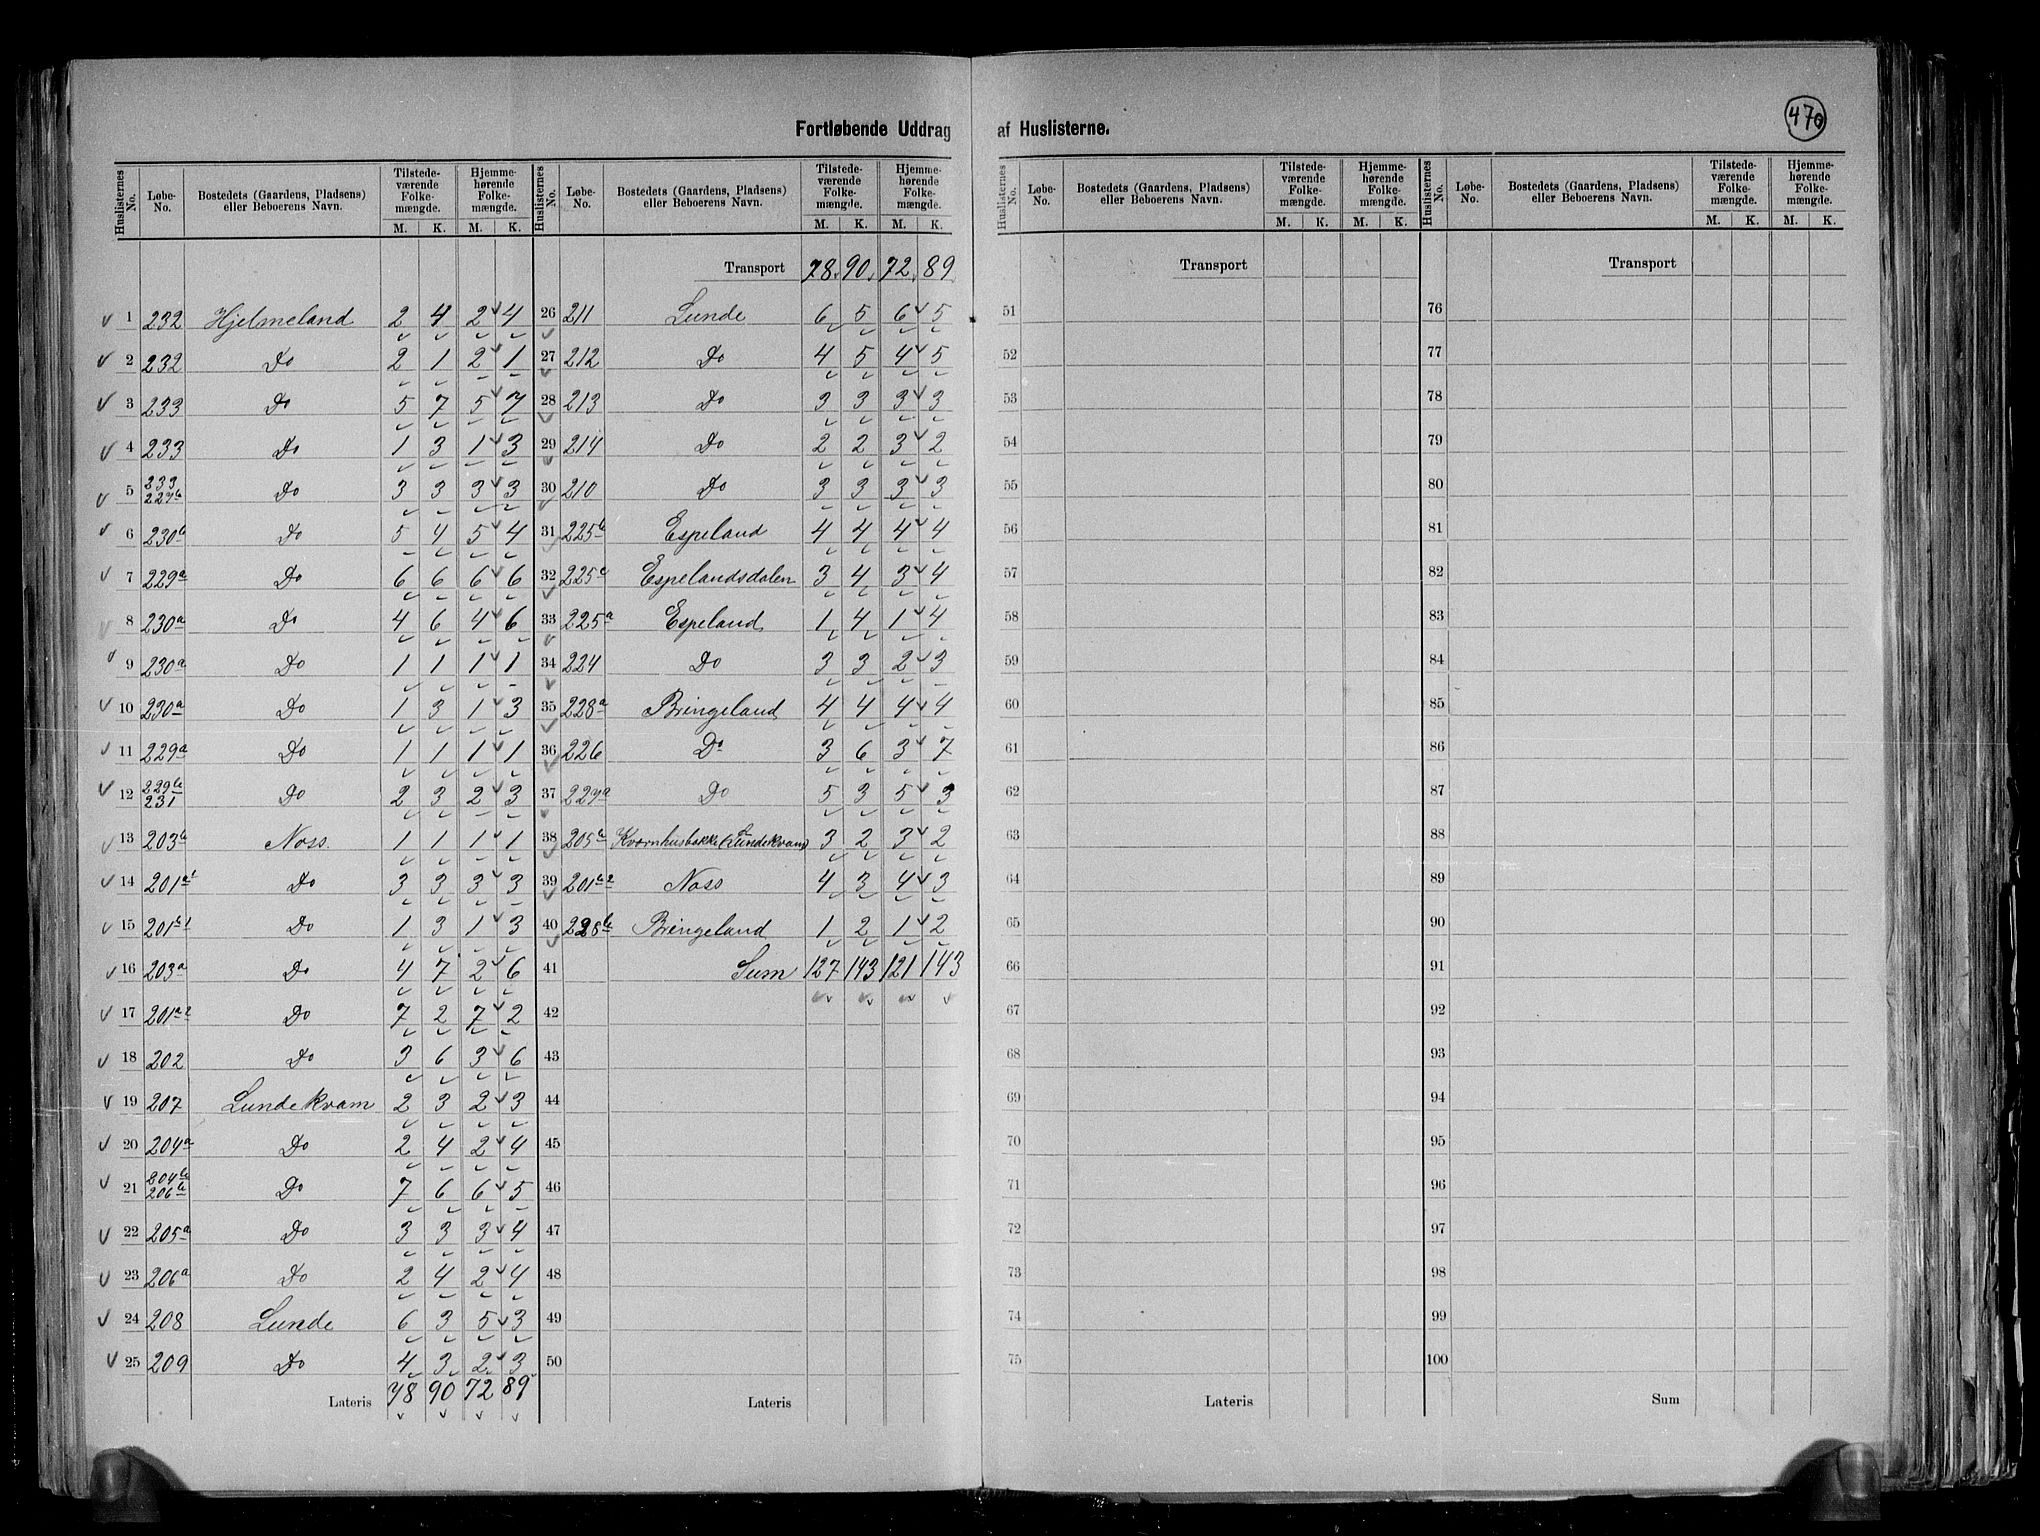 470
Fortløbende Uddrag af Huslisterne.
Huslisternes No. Løbe-No. Bostedets (Gaardens, Pladsens) eller Beboerens Navn. Tilstedeværende Folkemængde. Hjemmehørende Folkemængde. Huslisternes No. Løbe-No. Bostedets (Gaardens, Pladsens) eller Beboerens Navn. Tilstedeværende Folkemængde. Hjemmehørende Folkemængde.
M. K. M. K. M. K. M. K.
1 232 Hjelmeland 2 4 2 4
2 232 Do 2 1 2 1
3 233 Do 5 7 5 7
4 233 Do 1 3 1 3
5 233 227b Do 3 3 3 3
6 230b Do 5 4 5 4
7 229a Do 6 6 6 6
8 230a Do 4 6 4 6
9 230a Do 1 1 1 1
10 230a Do 1 3 1 3
11 229a Do 1 1 1 1
12 229b 231 Do 2 3 2 3
13 203b Noss. 1 1 1 1
14 201a1 Do 3 3 3 3
15 201b1 Do 1 3 1 3
16 203a Do 4 7 2 6
17 201a2 Do 7 2 7 2
18 202 Do 3 6 3 6
19 207 Lundekvam 2 3 2 3
20 204a Do 2 4 2 4
21 204b 206b Do 7 6 6 5
22 205a Do 3 3 3 4
23 206a Do 2 4 2 4
24 208 Lunde 6 3 5 3
25 209 Do 4 3 2 3
Lateris 78 90 72 89
Transport 78 90 72 89
26 211 Lunde 6 5 6 5
27 212 Do 4 5 4 5
28 213 Do 3 3 3 3
29 214 Do 2 2 3 2
30 210 Do 3 3 3 3
31 225b Espeland 4 4 4 4
32 225c Espelandsdalen 3 4 3 4
33 225a Espeland 1 4 1 4
34 224 Do 3 3 2 3
35 228a Bringeland 4 4 4 4
36 226 Do 3 6 3 7
37 227a Do 5 3 5 3
38 205b Kvornhusbakke (Lundekvam) 3 2 3 2
39 201b2 Noss 4 3 4 3
40 228b Bringeland 1 2 1 2
41 Sum 127 143 121 143
42
43
44
45
46
47
48
49
50
Lateris
Huslisternes No. Løbe-No. Bostedets (Gaardens, Pladsens) eller Beboerens Navn. Tilstedeværende Folkemængde. Hjemmehørende Folkemængde. Huslisternes No. Løbe-No. Bostedets (Gaardens, Pladsens) eller Beboerens Navn. Tilstedeværende Folkemængde. Hjemmehørende Folkemængde.
M. K. M. K. M. K. M. K.
Transport
51
52
53
54
55
56
57
58
59
60
61
62
63
64
65
66
67
68
69
70
71
72
73
74
75
Lateris
Transport
76
77
78
79
80
81
82
83
84
85
86
87
88
89
90
91
92
93
94
95
96
97
98
99
100
Sum